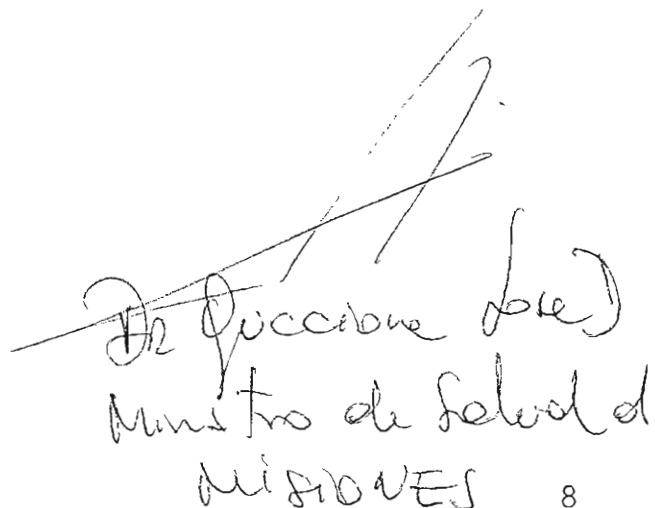 Dr Guccione Jose D
Ministro de Salud d
MISIONES
8